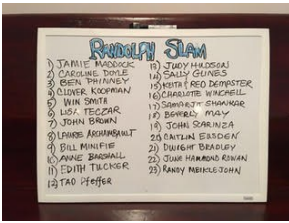 RANDOLPH SLAM
1) JAMIE MADDOCK
2) CAROLINE DOYLE
3) BEN PHINNEY
4) CLOVER KOOPMAN
5) WIN SMITH
6) LISA TECZAR
7) JOHN BROWN
8) LAURIE ARCHAMBAULT
9) BILL MINIFIE
10) ANNE BARSHALL
11) EDITH TUCKER
12) TAO Pfeffer
13) JUDY HUDSON
14) SALLY
15) KEITH REO DEMASTER
16) CHARLOTTE WINCHELL
17) SAMARJIT SHANKAR
18) BEVERLY MAY
19) JOHN SCARINZA
20) CAITLIN
21) DWIGHT BRADLEY
22) JUNE HAMMOND ROWAN
23) RANDY MEIKLEJOHN